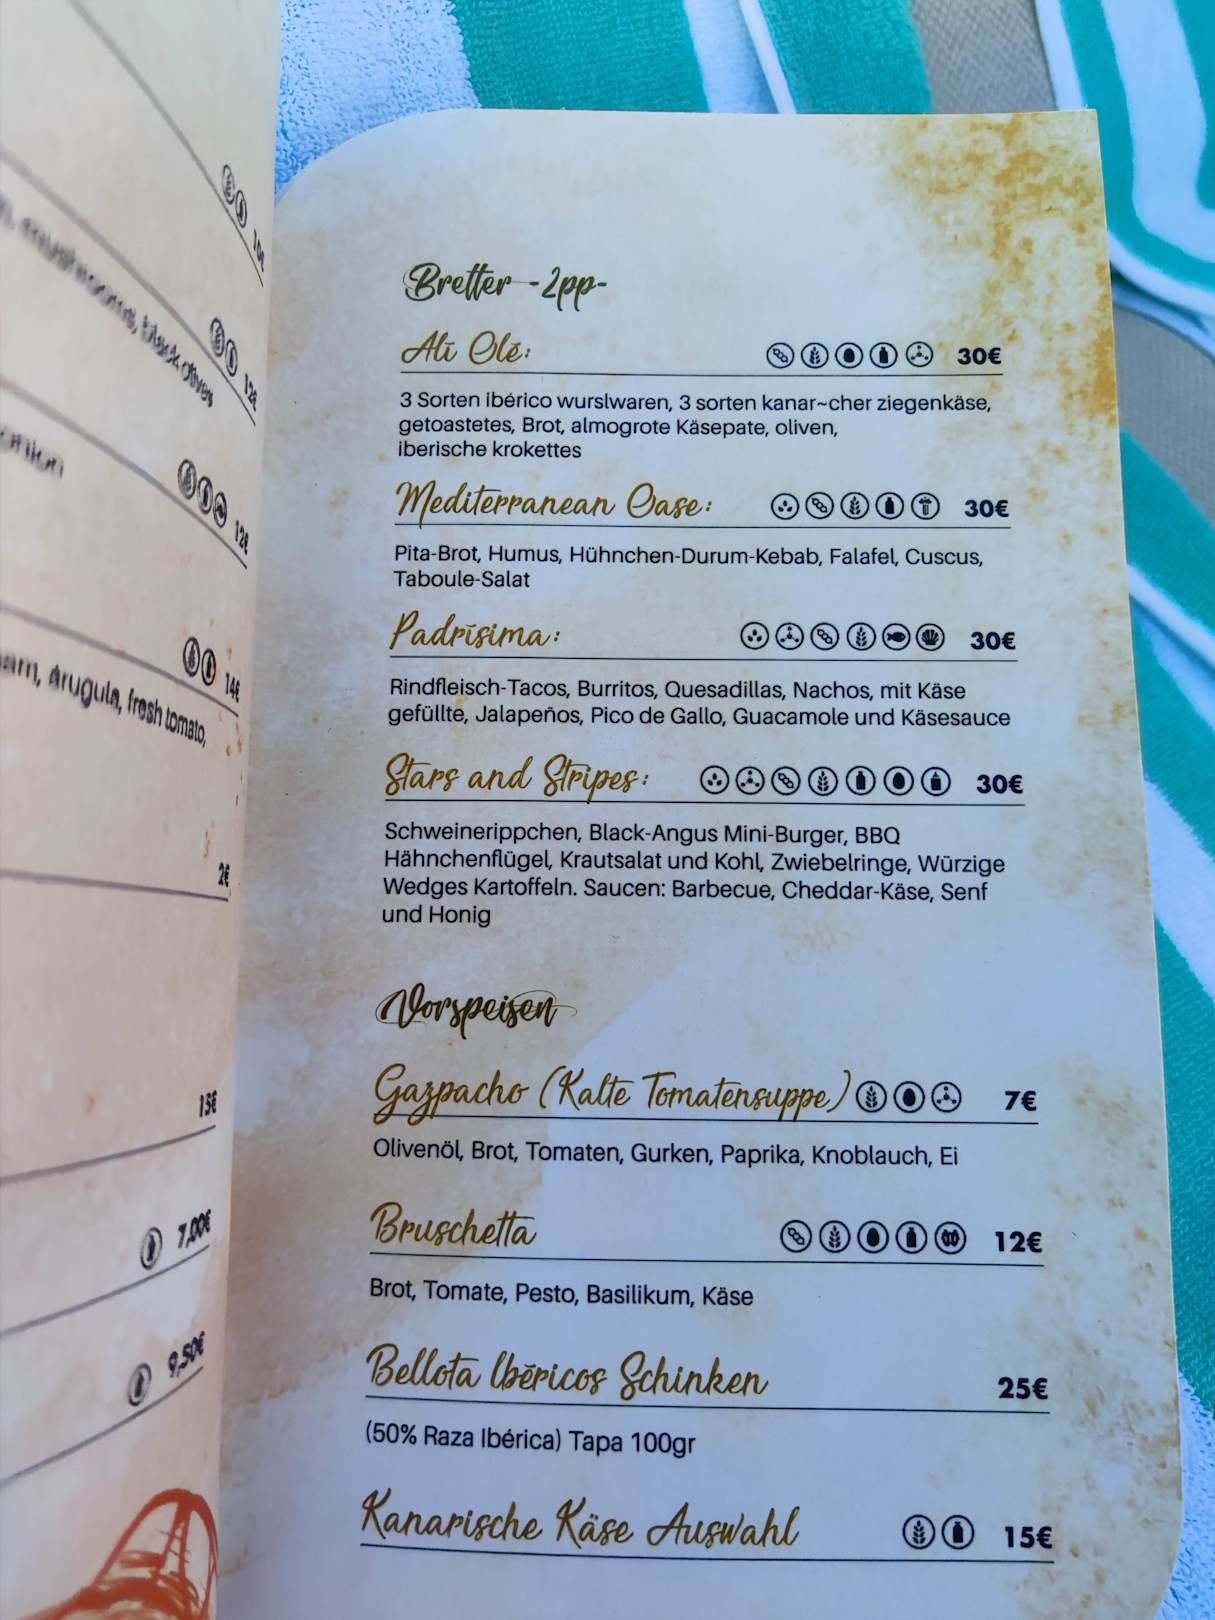 10€
mushrooms, black olives
12€
12€
14€
arugula, fresh tomato,
2€
15€
7,00€
9,50€
Bretter -2pp-
Ali Olé: 30€
3 Sorten ibérico wurslwaren, 3 sorten kanar~cher ziegenkäse,
getoastetes, Brot, almogrote Käsepate, oliven,
iberische krokettes
Mediterranean Oase: 30€
Pita-Brot, Humus, Hühnchen-Durum-Kebab, Falafel, Cuscus,
Taboule-Salat
Padrísima: 30€
Rindfleisch-Tacos, Burritos, Quesadillas, Nachos, mit Käse
gefüllte, Jalapeños, Pico de Gallo, Guacamole und Käsesauce
Stars and Stripes: 30€
Schweinerippchen, Black-Angus Mini-Burger, BBQ
Hähnchenflügel, Krautsalat und Kohl, Zwiebelringe, Würzige
Wedges Kartoffeln. Saucen: Barbecue, Cheddar-Käse, Senf
und Honig
Vorspeisen
Gazpacho (Kalte Tomatensuppe) 7€
Olivenöl, Brot, Tomaten, Gurken, Paprika, Knoblauch, Ei
Bruschetta 12€
Brot, Tomate, Pesto, Basilikum, Käse
Bellota Ibéricos Schinken 25€
(50% Raza Ibérica) Tapa 100gr
Kanarische Käse Auswahl 15€